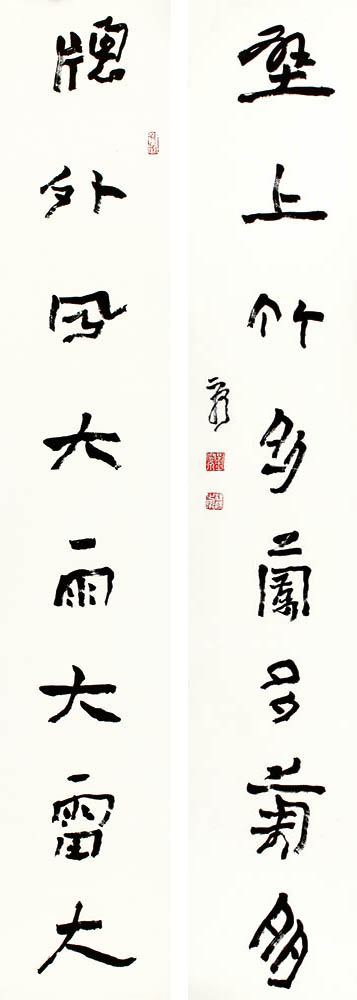 壁上竹多蘭多菊多
牕外風大雨大雷大